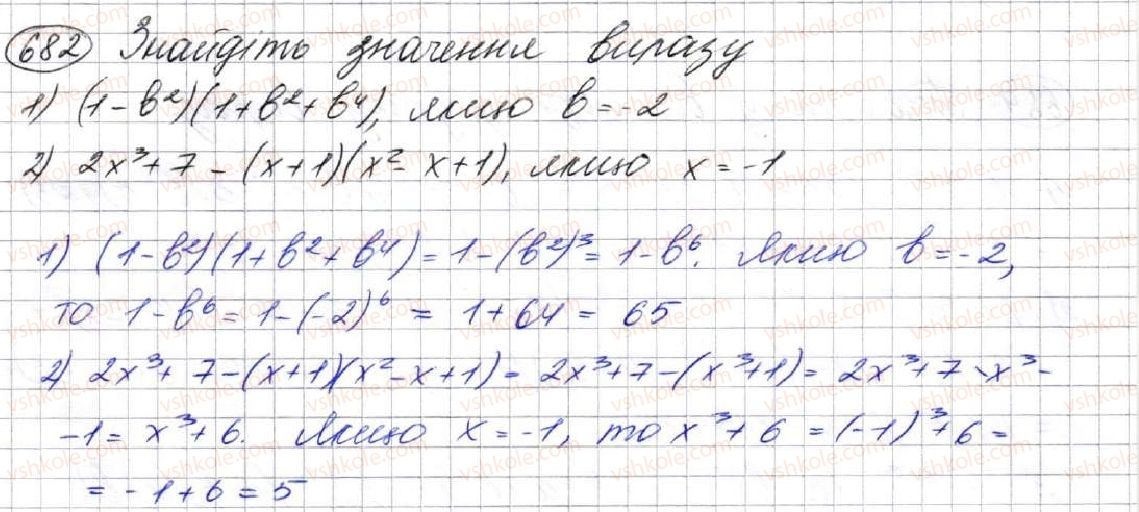 682 Знайдіть значення виразу
1) (1-b²)(1+b²+b⁴), якщо b=-2
2) 2x³+7-(x+1)(x²-x+1), якщо x=-1
1) (1-b²)(1+b²+b⁴)=1-(b²)³=1-b⁶. Якщо b=-2,
то 1-b⁶=1-(-2)⁶=1+64=65
2) 2x³+7-(x+1)(x²-x+1)=2x³+7-(x³+1)=2x³+7-x³-
-1=x³+6. Якщо x=-1, то x³+6=(-1)³+6=
=-1+6=5